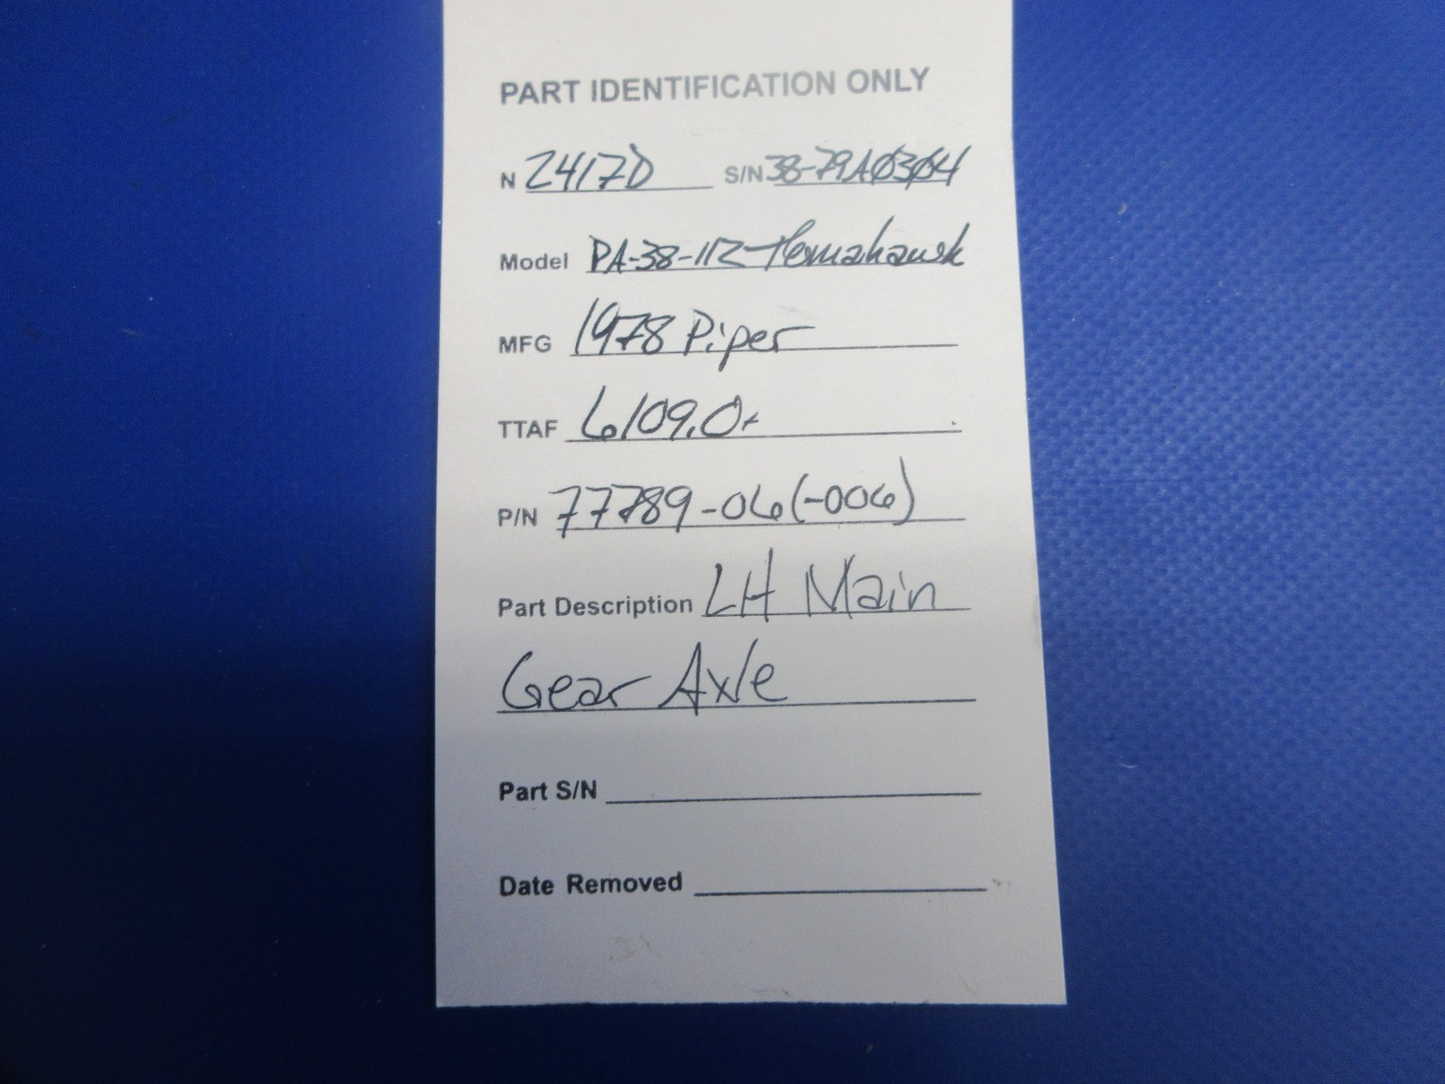 PART IDENTIFICATION ONLY
N 2417D S/N 38-79A0304
Model PA-38-112 Tomahawk
MFG 1978 Piper
TTAF 6109.0
P/N 77789-06(-006)
Part Description LH Main
Gear Axle
Part S/N
Date Removed